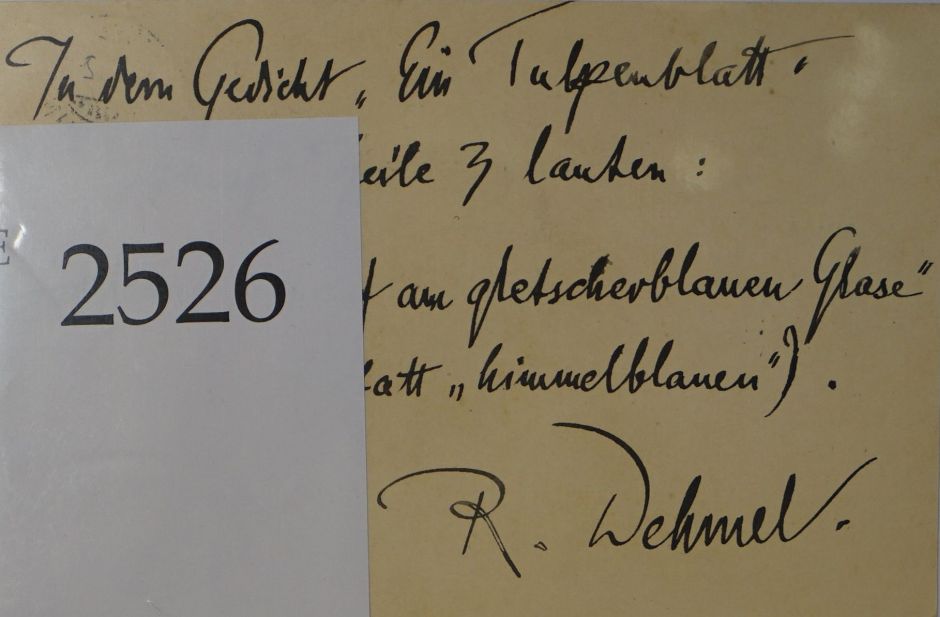 In dem Gedicht „Ein Tulpenblatt"
eile 3 lauten :
am gletscherblauen Glase"
att „himmelblauen") .
R. Dehmel.
2526